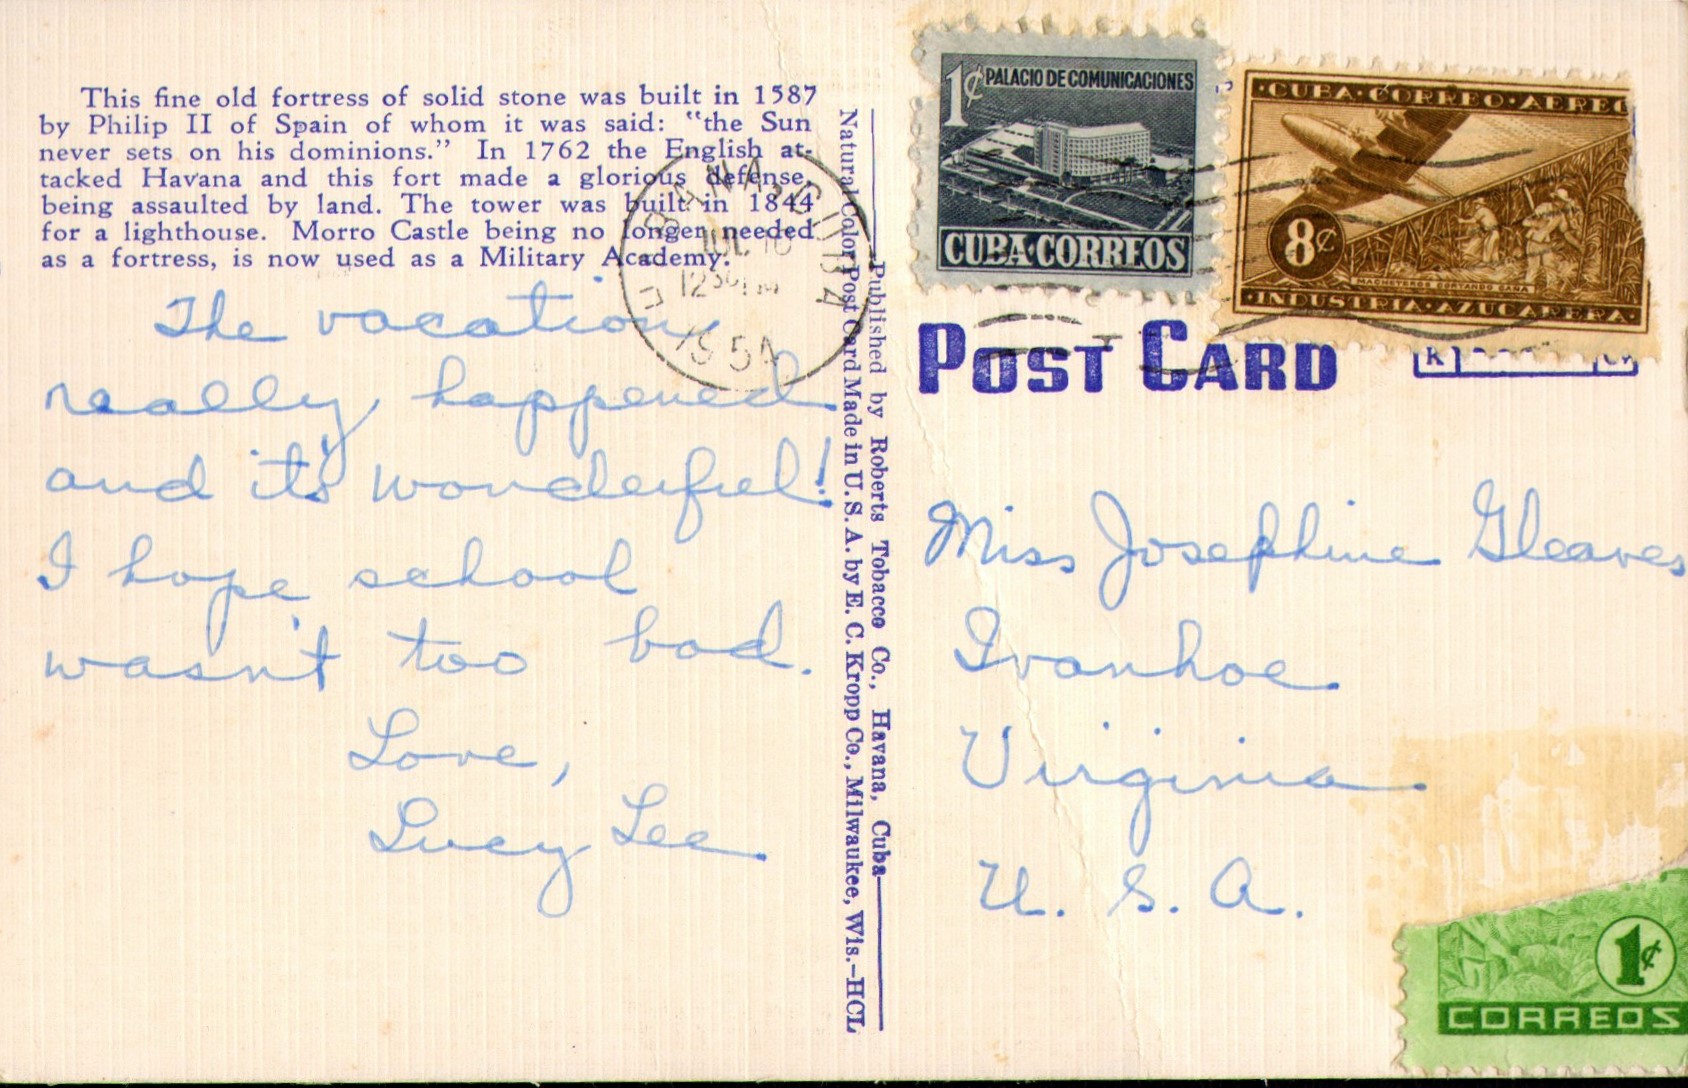 This fine old fortress of solid stone was built in 1587
by Philip II of Spain of whom it was said: "the Sun
never sets on his dominions." In 1762 the English at-
tacked Havana and this fort made a glorious defense,
being assaulted by land. The tower was built in 1844
for a lighthouse. Morro Castle being no longer needed
as a fortress, is now used as a Military Academy.
The vacation
really happened
and it's wonderful!
I hope school
wasn't too bad.
Love,
Lucy Lee
HABANA, CUBA
JUL
1230 PM
1954
Natural Color Post Card Made in U.S.A. by E. C. Kropp Co., Milwaukee, Wis.—HCL
Published by Roberts Tobacco Co., Havana, Cuba
1¢ PALACIO DE COMUNICACIONES
CUBA·CORREOS
·CUBA·CORREO·AEREO
8¢
MACHETEROS CORTANDO CAÑA
·INDUSTRIA·AZUCARERA·
POST CARD
Miss Josephine Gleaves
Ivanhoe
Virginia
U. S. A.
1¢
CORREOS